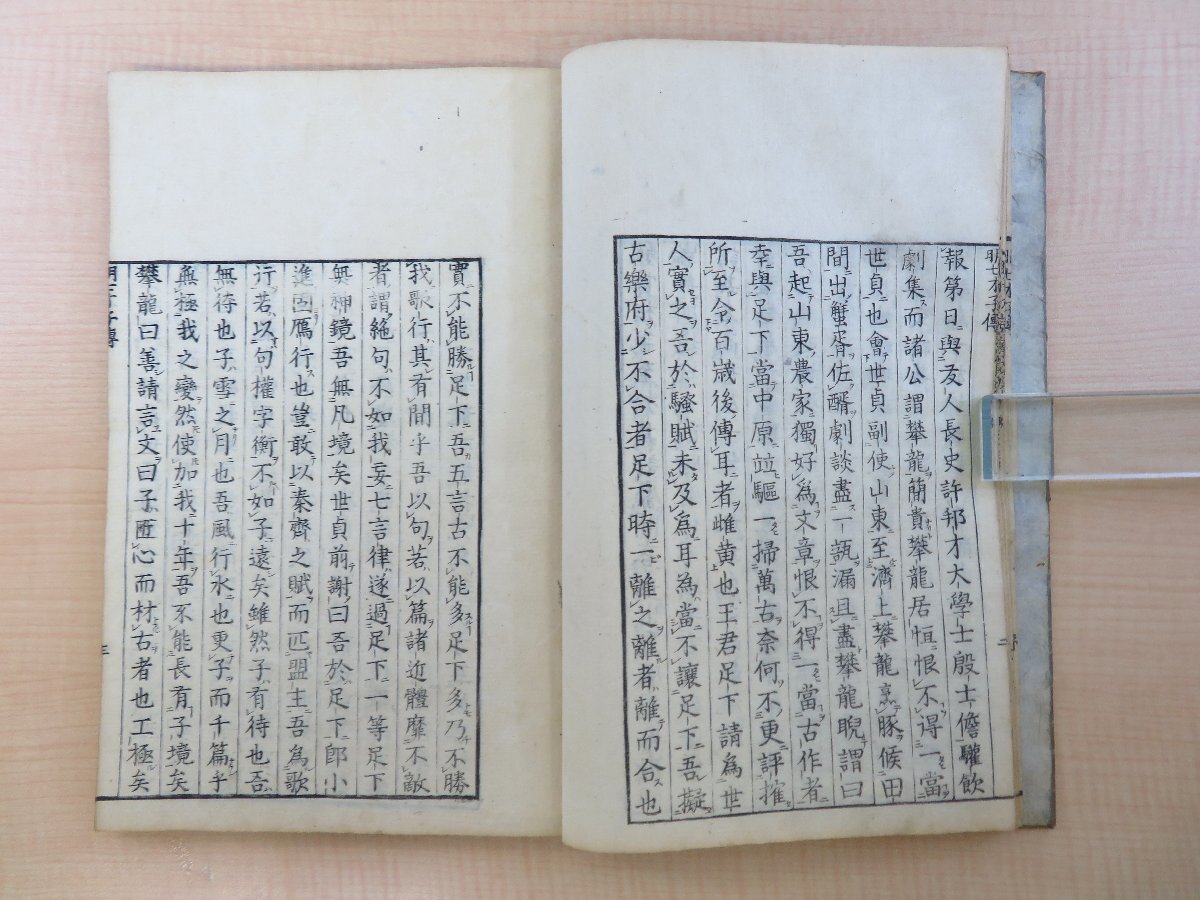 報第日與友人長史許邦才大學士殷士儋驩飲
劇集而諸公謂攀龍簡貴攀龍居恒恨不得一當
世貞也會世貞副使山東至濟上攀龍烹豚候田
間出蟹胥佐醑劇談盡一瓻漏且盡攀龍睨謂曰
吾起山東農家獨好為文章恨不得一當古作者
幸與足下當中原並驅一掃萬古奈何不更評搉
所至令百歲後傳耳者雌黃也王君足下請為世
人實之吾於騷賦未及為耳為當不讓足下吾擬
古樂府少不合者足下時一離之離者離而合也
實不能勝足下吾五言古不能多足下多乃不勝
我歌行其有間乎吾以句若以篇諸近體靡不敵
者謂絕句不如我妄七言律遂過足下一等足下
無神鏡吾無凡境矣世貞前謝曰吾於足下即小
進固鴈行也豈敢以秦齊之賦而匹盟主吾為歌
行若以句權字衡不如子遠矣雖然子有待也吾
無待也子雪之月也吾風行水也更子而千篇乎
無極我之變然使加我十年吾不能長有子境矣
攀龍曰善請言文曰子匠心而材古者也工極矣
三